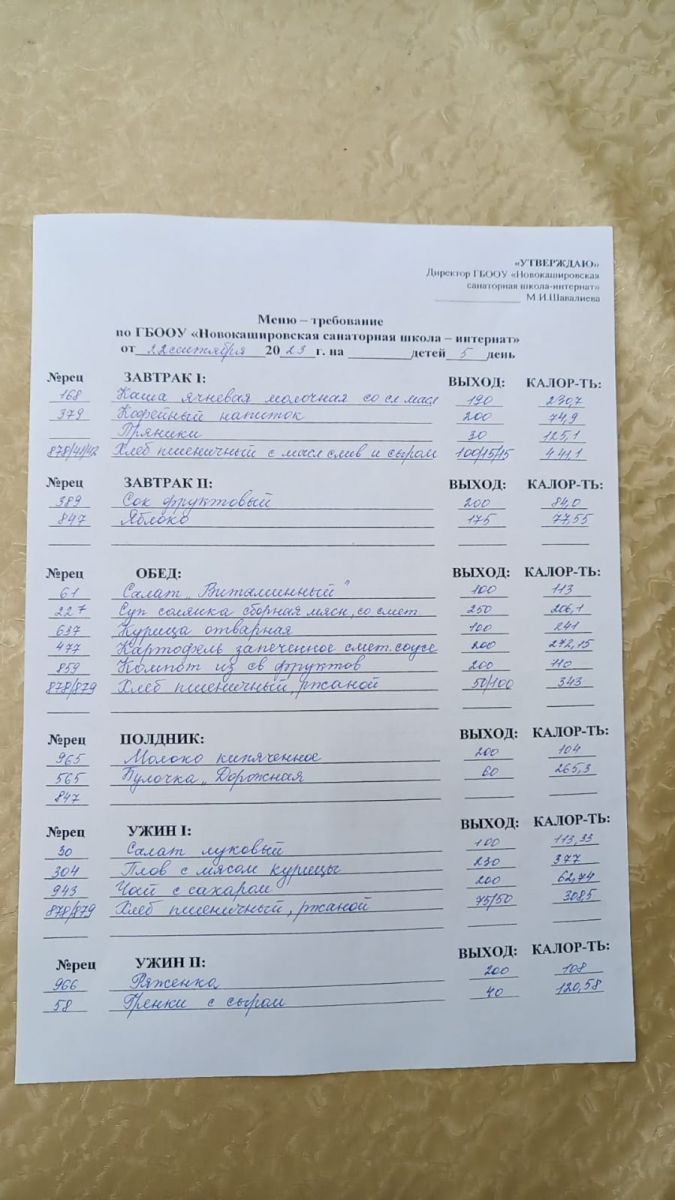 «УТВЕРЖДАЮ»
Директор ГБООУ «Новокашировская
санаторная школа-интернат»
М.И.Шавалиева
Меню – требование
по ГБООУ «Новокашировская санаторная школа – интернат»
от 22 сентября 2023 г. на детей 5 день
№рец ЗАВТРАК I: ВЫХОД: КАЛОР-ТЬ:
168 Каша ячневая молочная со сл масл 190 230,7
379 Кофейный напиток 200 74,9
Пряники 30 125,1
878/41/42 Хлеб пшеничный с масл слив и сыром 100/15/15 441,1
№рец ЗАВТРАК II: ВЫХОД: КАЛОР-ТЬ:
389 Сок фруктовый 200 84,0
847 Яблоко 175 77,55
№рец ОБЕД: ВЫХОД: КАЛОР-ТЬ:
61 Салат „Витаминный" 100 113
227 Суп солянка сборная мясн, со смет 250 206,1
637 Курица отварная 100 241
477 Картофель запеченное смет. соусе 200 272,15
859 Компот из св фруктов 200 110
878/879 Хлеб пшеничный, ржаной 50/100 343
№рец ПОЛДНИК: ВЫХОД: КАЛОР-ТЬ:
965 Молоко кипяченное 200 104
565 Булочка „Дорожная 60 265,3
847
№рец УЖИН I: ВЫХОД: КАЛОР-ТЬ:
30 Салат луковый 100 113,33
304 Плов с мясом курицы 230 377
943 Чай с сахаром 200 62,74
878/879 Хлеб пшеничный, ржаной 75/50 308,5
№рец УЖИН II: ВЫХОД: КАЛОР-ТЬ:
966 Ряженка 200 108
58 Гренки с сыром 40 120,58